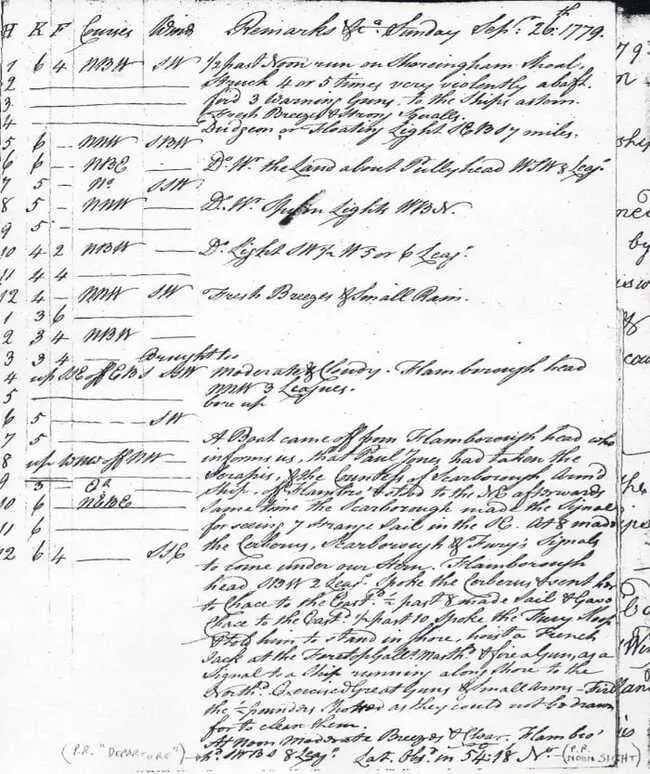 H K F Courses Wind Remarks &ca Sunday Sepr. 26th 1779.
1 6 4 NBW SW 1/2 past Noon run on Sheringham Shoal,
2 Struck 4 or 5 times very violently abaft.
3 fir'd 3 Warning Guns to the Ships astern.
4 Fresh Breezes & Strong Squalls.
5 6 - NNW SBW Dudgeon or Floating Light 7 miles.
6 6 - NBE Do. Wr. the Land about Leags.
7 5 - No SSW
8 5 - NNW Do. Wr. Spurn Lights WBN.
9 5 -
10 4 2 NBW Do. Light SW1/2W 5 or 6 Leags.
11 4 4
12 4 - NNW SW Fresh Breezes & Small Rain.
1 3 6
2 3 4 NBW
3 3 4 Brought too
4 up SSE off EBS SBW Moderate & Cloudy. Flamborough head
5 NNW 3 Leagues.
bore up
6 5 - SW
7 5 - A Boat came off from Flamborough head who
8 up WNW off NW informs us, that Paul Jones had taken the
9 3 - Serapis, & the Countess of Scarborough Arm'd
10 6 - NEBE Ship, off & stood to the NE afterwards
same time the Scarborough made the Signal
11 6 for seeing 7 Strange Sail in the SE. At 8 made
12 6 4 SSE the Cerberus, Scarborough & Fury's Signals
to come under our Stern. Flamborough
head SBW 2 Leags. Spoke the Cerberus & sent her
to Chace to the Eastd. 1/2 past 8 made Sail & Gave
Chace to the Eastd. 1/2 past 10 Spoke the Fury Sloop
& told him to stand in shore, hoist a French
Jack at the Foretopgallt. Masthd. & fire a Gun, as a
Signal to a Ship running along Shore to the
Northd. Exercised Great Guns & Small Arms - Fired
the pounders Shotted as they could not be drawn
for to clean them.
At Noon Moderate Breezes & Clear. Flambro'
hd. WBS 8 Leags. Lat. Obsd. in 54..18 No.
(P.R. "DEPARTURE") (P.R. NOON SIGHT)